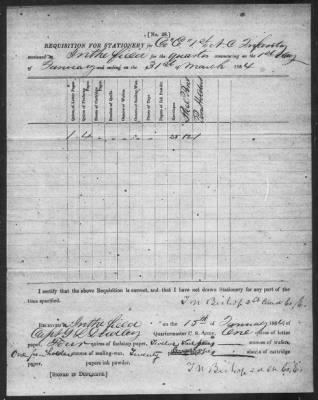 [No. 38.]
REQUISITION FOR STATIONERY for Co E 1st N C Infantry
stationed at In the field for the quarter commencing on the 1st day
of January and ending on the 31st of March 1864
Quires of Letter Paper.
Quires of Foolscap Paper.
Quires of Cartridge Paper.
Number of Quills.
Ounces of Wafers.
Ounces of Sealing-Wax.
Pieces of Tape.
Papers of Ink Powder.
Envelopes
Steel Pens
Pen Holders
1 4 25 12 1
I certify that the above Requisition is correct, and that I have not drawn Stationery for any part of the
time specified.
T M Bishop 2d Lieut Co E
RECEIVED at In the field on the 15th of January 1864 of
Capt Quartermaster C. S. Army, One quires of letter
paper, Four quires of foolscap paper, Twelve Steel pens ounces of wafers,
One pen holder ounces of sealing-wax, Twenty quires of cartridge
paper, papers ink powder.
T M Bishop 2d Lt Co E
[SIGNED IN DUPLICATE.]